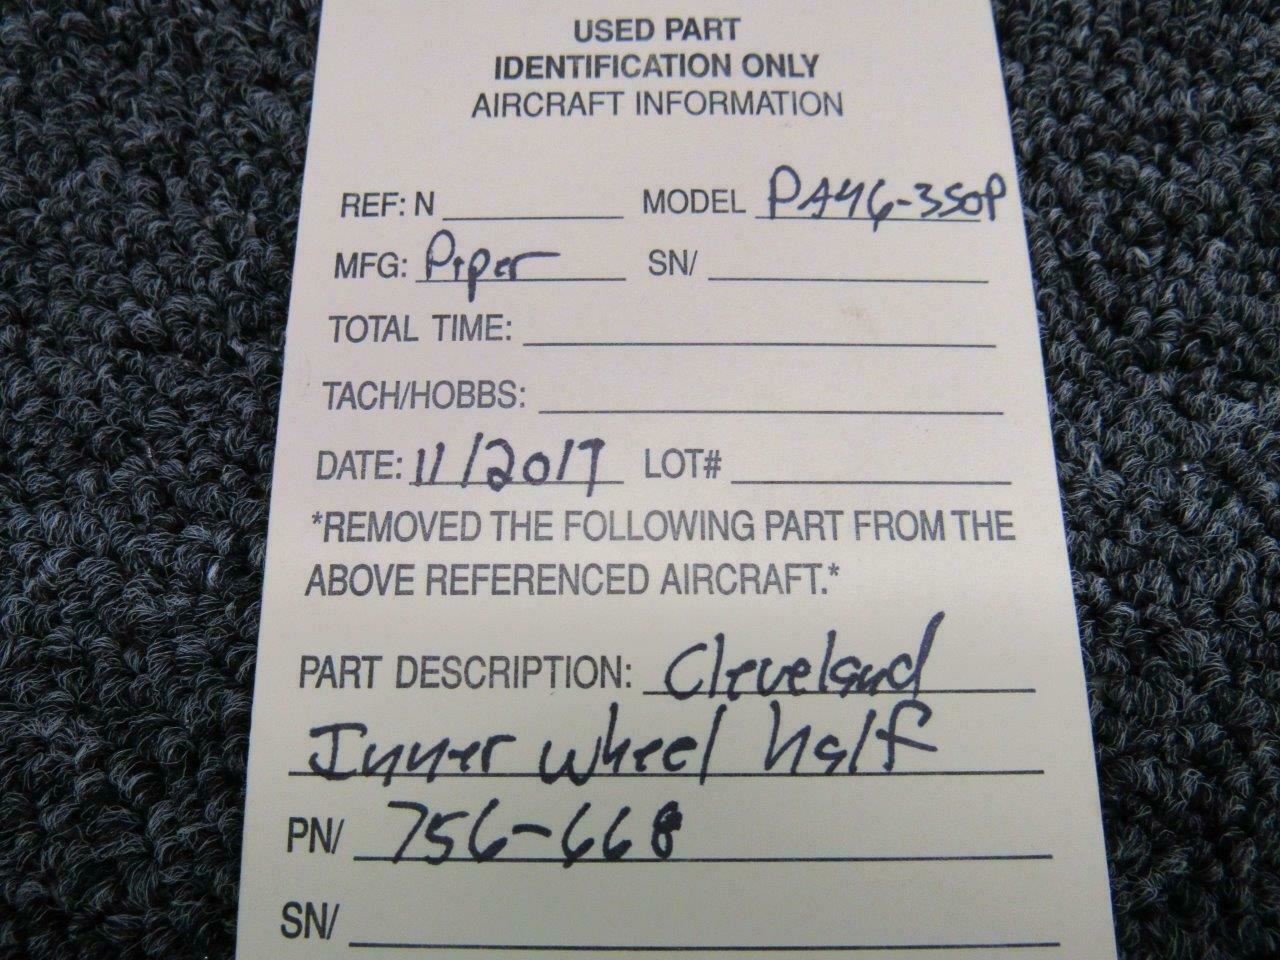 USED PART
IDENTIFICATION ONLY
AIRCRAFT INFORMATION
REF: N MODEL PA46-350P
MFG: Piper SN/
TOTAL TIME:
TACH/HOBBS:
DATE: 11/2017 LOT#
*REMOVED THE FOLLOWING PART FROM THE
ABOVE REFERENCED AIRCRAFT.*
PART DESCRIPTION: Cleveland
Inner wheel half
PN/ 756-668
SN/